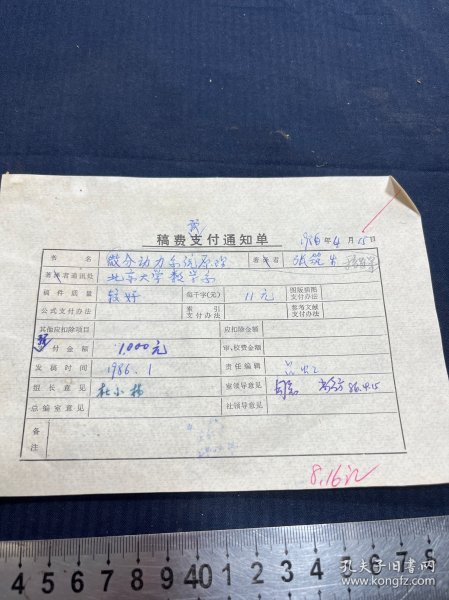 预
稿费支付通知单
1986年4月15日
书名 微分动力系统原理 著译者 张筑生
著译者通讯处 北京大学数学系
稿件质量 较好 每千字(元) 11元 图版插图支付办法
公式支付办法 索引支付办法 参考文献支付办法
其他应扣除项目 应扣除金额
预付金额 1,000元 审、校费金额
发稿时间 1986.1 责任编辑
组长意见 杜小杨 室领导意见 86.4.15
总编室意见 社领导意见
备注
8.16
4 5 6 7 8 9 40 1 2 3 4 5 6 7 8
孔夫子旧书网
www.kongfz.com